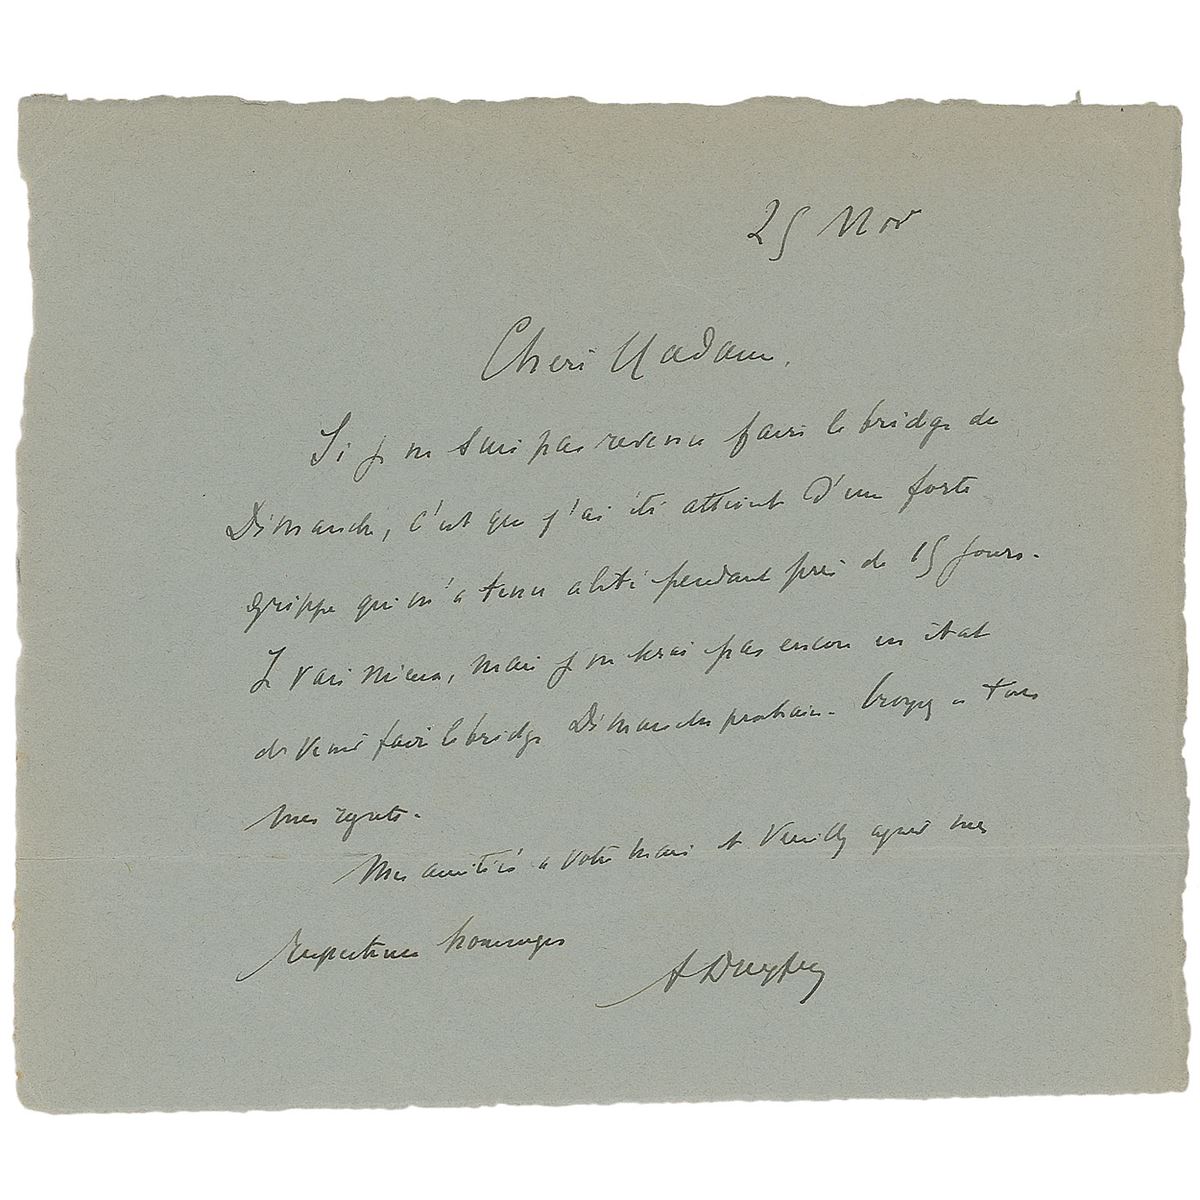 25 Nov
Chère Madame,
Si je ne suis pas revenu faire le bridge du
Dimanche, c'est que j'ai été atteint d'une forte
grippe qui m'a tenu alité pendant près de 15 jours.
Je vais mieux, mais je ne serai pas encore en état
de venir faire le bridge Dimanche prochain. Croyez à tous
mes regrets.
Mes amitiés à votre mari et veuillez agréer mes
respectueux hommages
A Dreyfus